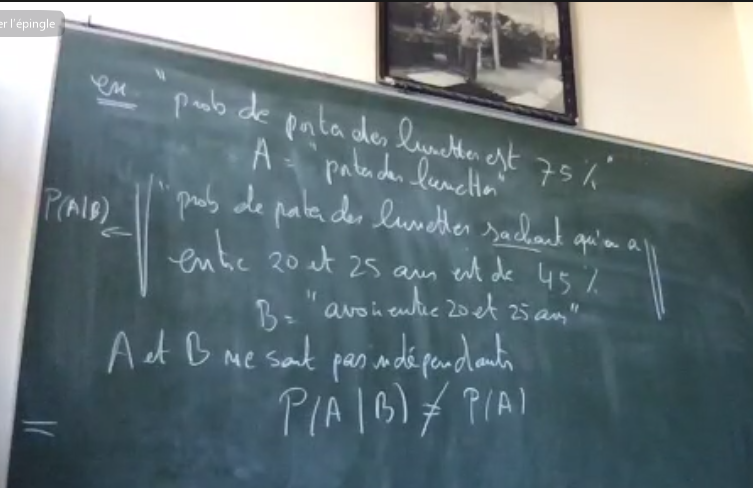 er l'épingle
ex "prob de porter des lunettes est 75%"
A = "porter des lunettes"
P(A|B) ← "prob de porter des lunettes sachant qu'on a
entre 20 et 25 ans est de 45%
B = "avoir entre 20 et 25 ans"
A et B ne sont pas indépendants
P(A|B) ≠ P(A)
=